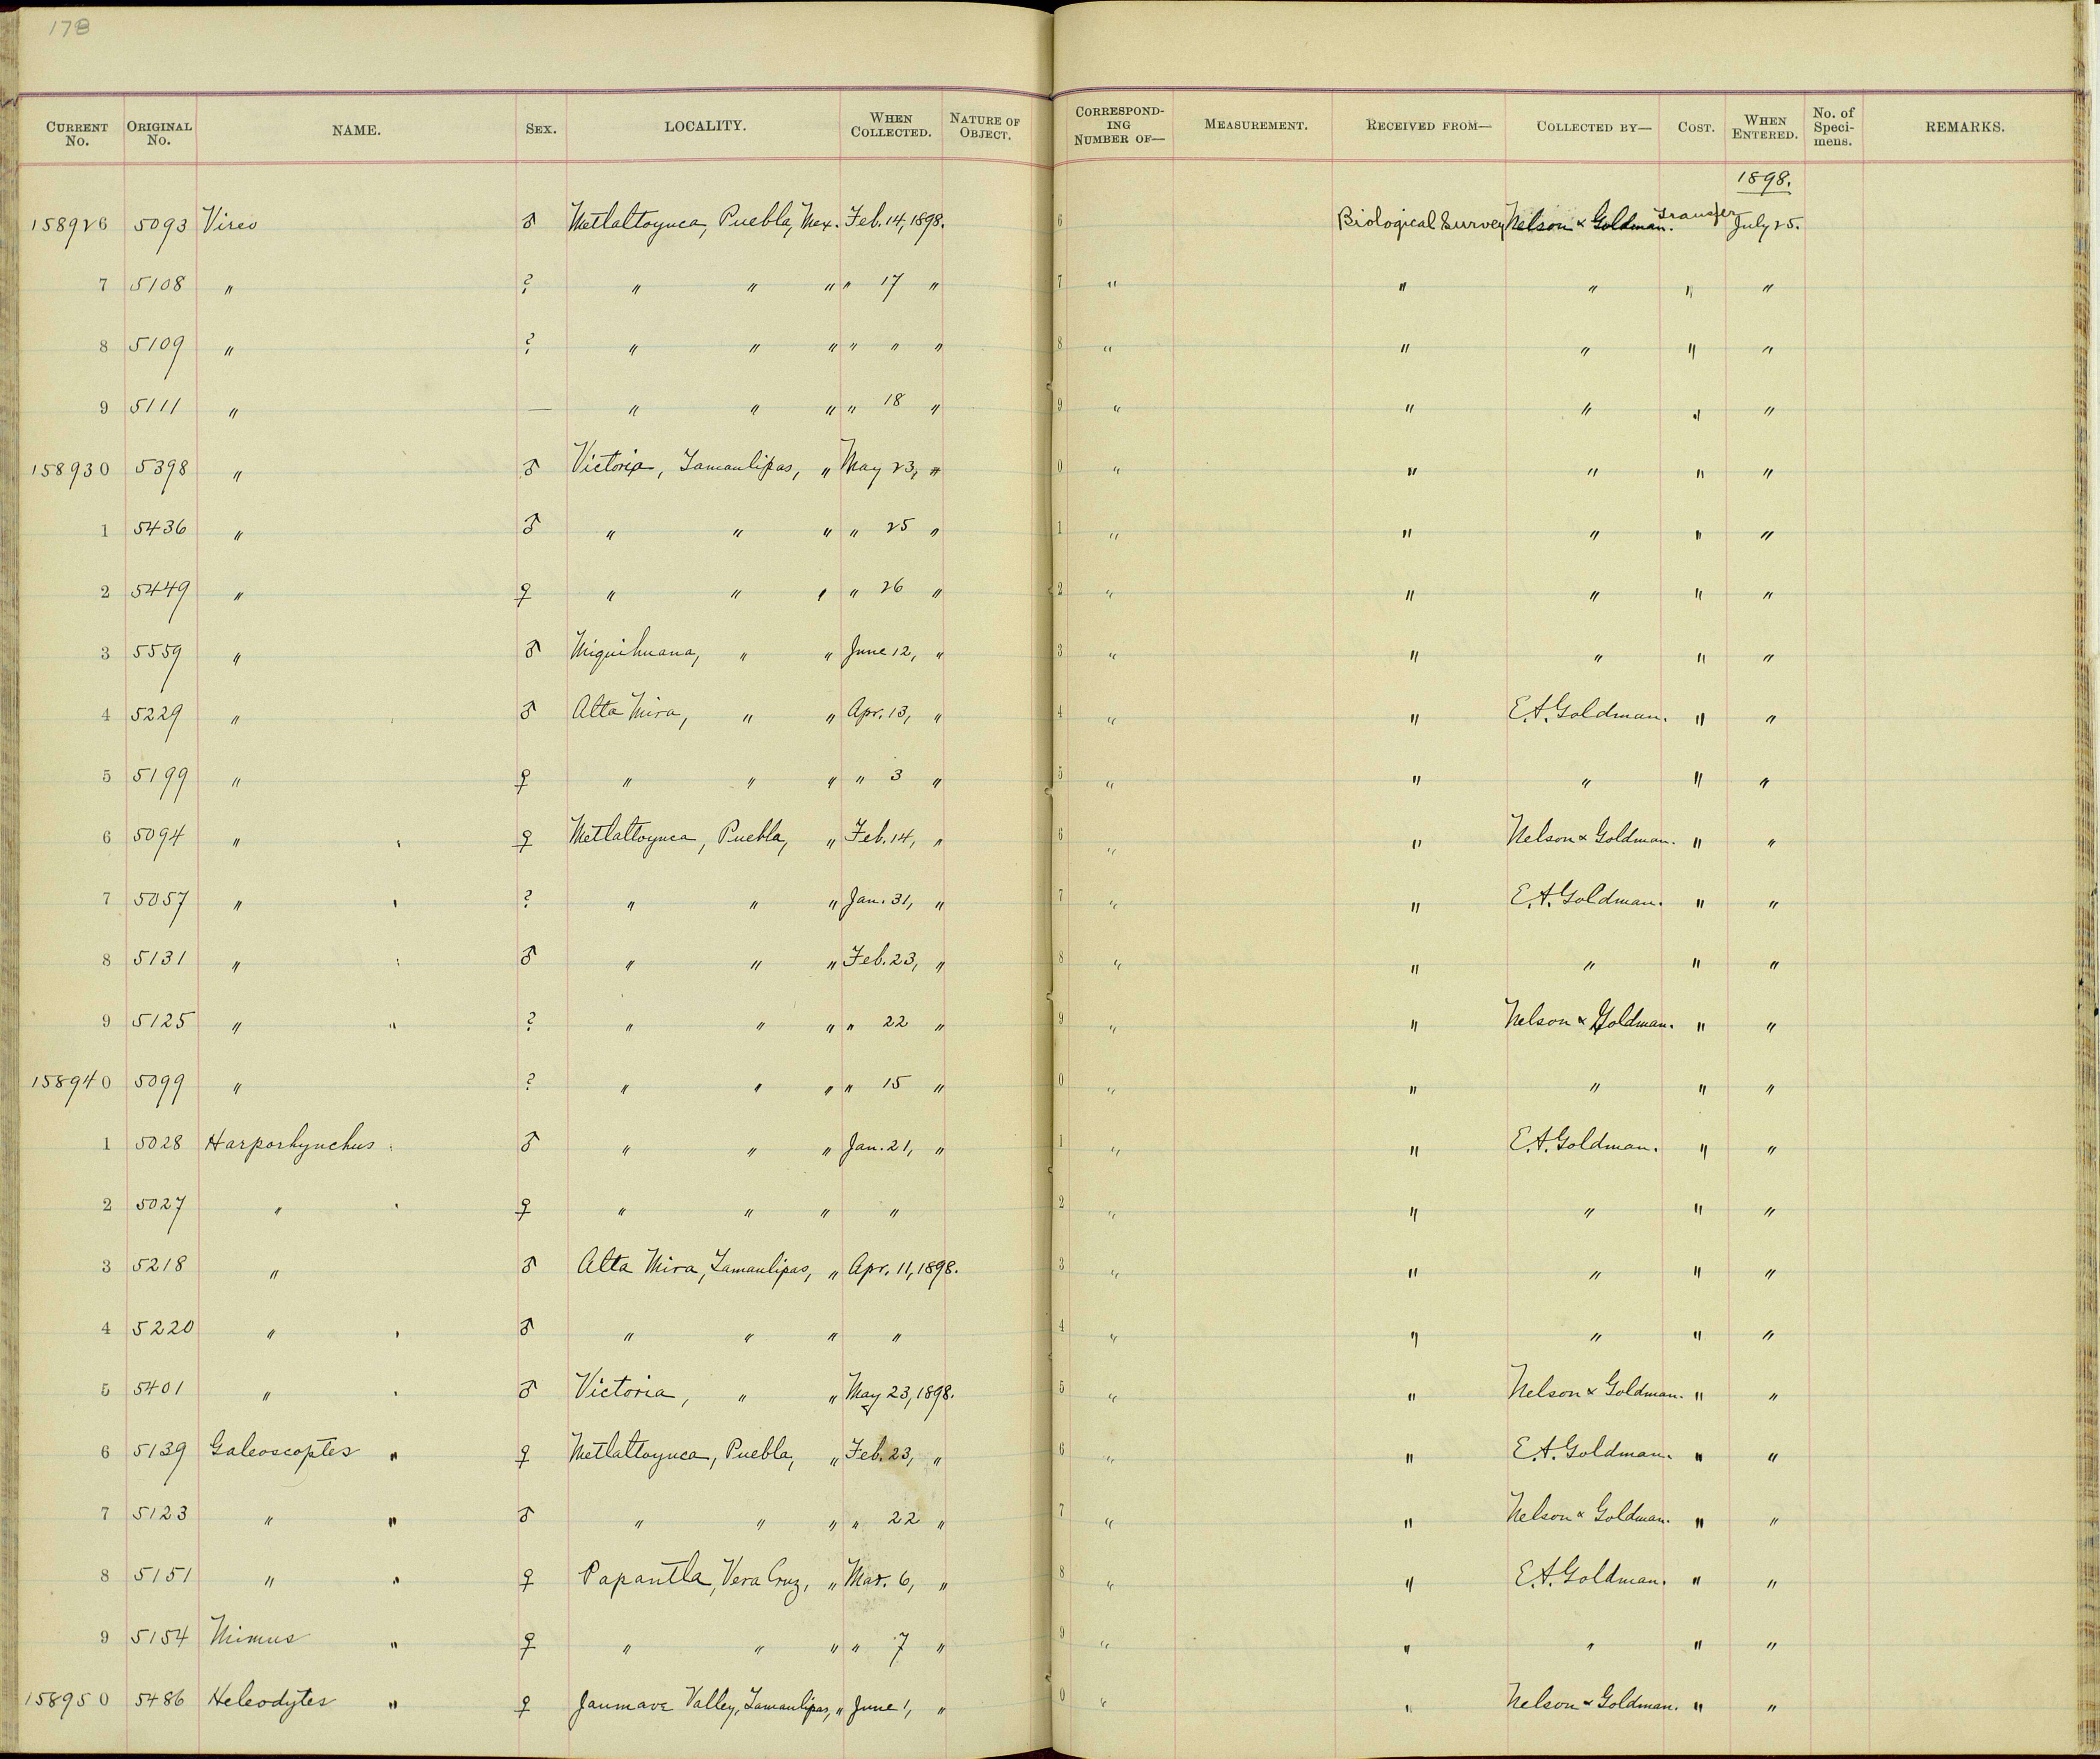 178
CURRENT No. ORIGINAL No. NAME. SEX. LOCALITY. WHEN COLLECTED. NATURE OF OBJECT. CORRESPONDING NUMBER OF— MEASUREMENT. RECEIVED FROM— COLLECTED BY— COST. WHEN ENTERED. No. of Specimens. REMARKS.
1898.
158926 5093 Vireo ♂ Metlaltoyuca, Puebla, Mex. Feb. 14, 1898. 6 Biological Survey Nelson & Goldman. Transfer July 25.
7 5108 " ? " " " " 17 " 7 " " " " "
8 5109 " ? " " " " " " 8 " " " " "
9 5111 " — " " " " 18 " 9 " " " " "
158930 5398 " ♂ Victoria, Tamaulipas, " May 23, " 0 " " " " "
1 5436 " ♂ " " " " 25 " 1 " " " " "
2 5449 " ♀ " " " " 26 " 2 " " " " "
3 5559 " ♂ Miquihuana, " " June 12, " 3 " " " " "
4 5229 " ♂ Alta Mira, " " Apr. 13, " 4 " " E.A. Goldman. " "
5 5199 " ♀ " " " " 3 " 5 " " " " "
6 5094 " ♀ Metlaltoyuca, Puebla, " Feb. 14, " 6 " " Nelson & Goldman. " "
7 5057 " ? " " " Jan. 31, " 7 " " E.A. Goldman. " "
8 5131 " ♂ " " " Feb. 23, " 8 " " " " "
9 5125 " " ? " " " " 22 " 9 " " Nelson & Goldman. " "
158940 5099 " ? " " " " 15 " 0 " " " " "
1 5028 Harporhynchus ♂ " " " Jan. 21, " 1 " " E.A. Goldman. " "
2 5027 " ♀ " " " " 2 " " " " "
3 5218 " ♂ Alta Mira, Tamaulipas, " Apr. 11, 1898. 3 " " " " "
4 5220 " ♂ " " " " 4 " " " " "
5 5401 " ♂ Victoria, " " May 23, 1898. 5 " " Nelson & Goldman. " "
6 5139 Galeoscoptes " ♀ Metlaltoyuca, Puebla, " Feb. 23, " 6 " " E.A. Goldman. " "
7 5123 " " ♂ " " " " 22 " 7 " " Nelson & Goldman. " "
8 5151 " " ♀ Papantla, Vera Cruz, " Mar. 6, " 8 " " E.A. Goldman. " "
9 5154 Mimus " ♀ " " " " 7 " 9 " " " " "
158950 5486 Heleodytes " ♀ Jaumave Valley, Tamaulipas, " June 1, " 0 " " Nelson & Goldman. " "